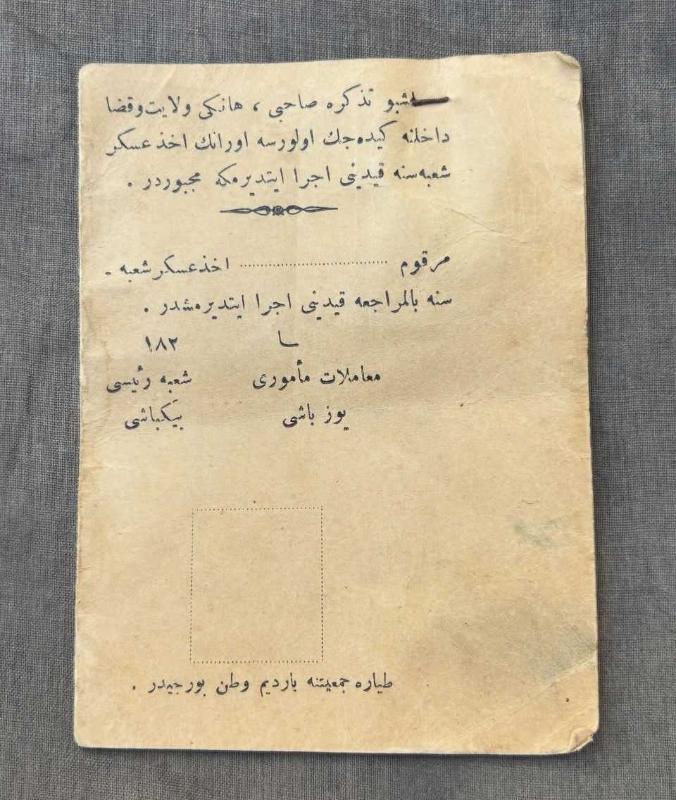 اشبو تذكره صاحبى ، هانكى ولايت وقضا
داخلنه كيده‌جك اولورسه اورانك اخذ عسكر
شعبه‌سنه قيدينى اجرا ايتديرمكه مجبوردر .
مرقوم ........................ اخذ عسكر شعبه -
سنه بالمراجعه قيدينى اجرا ايتديرمشدر .
١٨٢
معاملات مأمورى شعبه رئيسى
يوز باشى بيكباشى
طياره جمعيتنه ياردیم وطن بورجيدر .